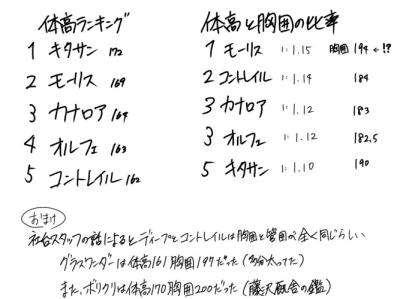 体高ランキング
1 キタサン 172
2 モーリス 169
3 カナロア 164
4 オルフェ 163
5 コントレイル 162
体高と胸囲の比率
1 モーリス 1:1.15 胸囲 194 ←!?
2 コントレイル 1:1.14 184
3 カナロア 1:1.12 183
3 オルフェ 1:1.12 182.5
5 キタサン 1:1.10 190
おまけ
社台スタッフの話によるとディープとコントレイルは胸囲と管囲が全く同じらしい
グラスワンダーは体高161胸囲197だった(多分太ってた)
また、ボリクリは体高170胸囲200だった(藤沢厩舎の鑑)